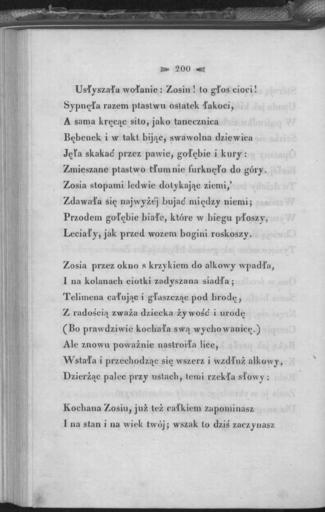 200
Usłyszała wołanie: Zosiu! to głos cioci!
Sypnęła razem ptastwu ostatek łakoci,
A sama kręcąc sito, jako tanecznica
Bębenek i w takt bijąc, swawolna dziewica
Jęła skakać przez pawie, gołębie i kury:
Zmieszane ptastwo tłumnie furknęło do góry.
Zosia stopami ledwie dotykając ziemi,
Zdawała się najwyżéj bujać między niemi;
Przodem gołębie białe, które w biegu płoszy,
Leciały, jak przed wozem bogini roskoszy.
Zosia przez okno s krzykiem do alkowy wpadła,
I na kolanach ciotki zadyszana siadła;
Telimena całując i głaszcząc pod brodę,
Z radością zważa dziecka żywość i urodę
(Bo prawdziwie kochała swą wychowanicę.)
Ale znowu poważnie nastroiła lice,
Wstała i przechodząc się wszerz i wzdłuż alkowy,
Dzierżąc palec przy ustach, temi rzekła słowy:
Kochana Zosiu, już też całkiem zapominasz
I na stan i na wiek twój; wszak to dziś zaczynasz